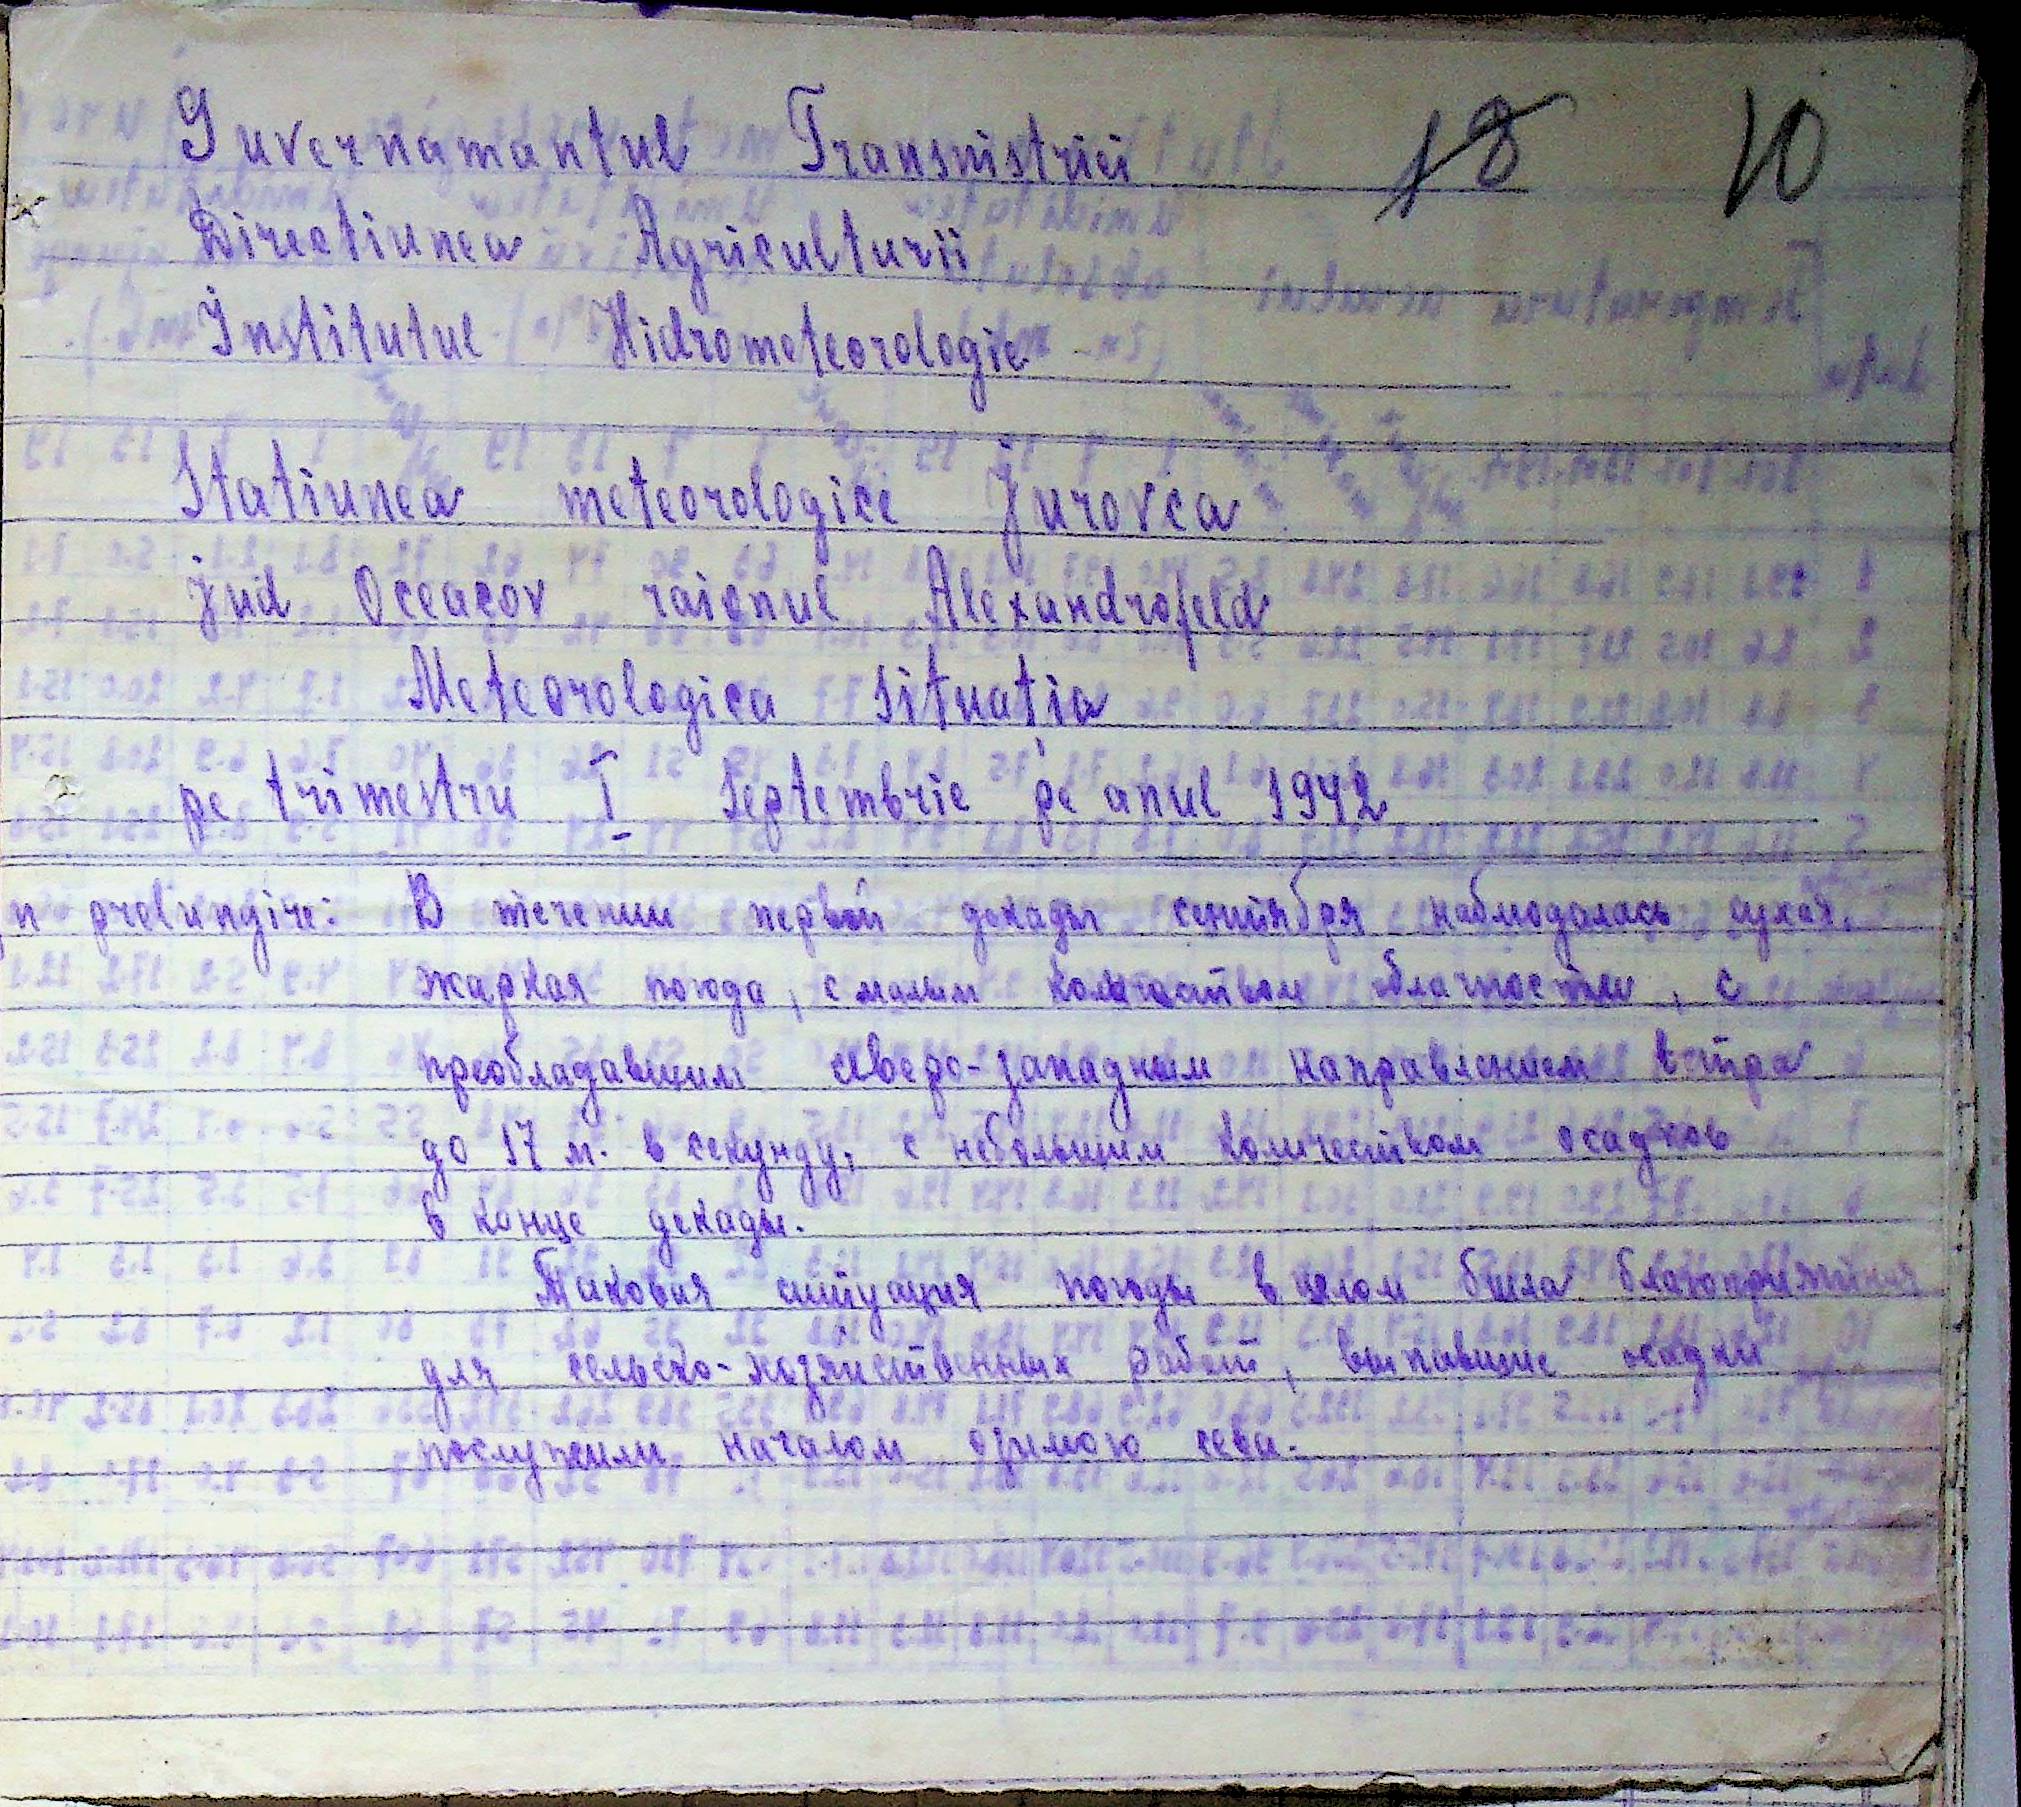 Guvernamantul Transnistriei 18 10
Directiunea Agriculturii
Institutul Hidrometeorologic
Statiunea meteorologice Jurovca
Jud Oceacov raionul Alexandrofeld
Meteorologica situatia
pe trimestru I Septembrie pe anul 1942
n prelungire: В течении первой декады сентября наблюдалась сухая,
жаркая погода, с малым количеством облачности, с
преобладавшим северо-западным направлением ветра
до 17 м. в секунду, с небольшим количеством осадков
в конце декады.
Таковая ситуация погоды в целом была благоприятная
для сельско-хозяйственных работ, выпавшие осадки
послужили началом озимого сева.